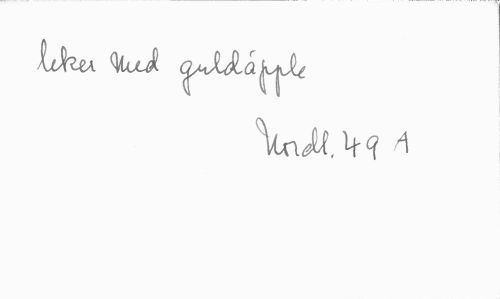 leker med guldäpple
Nordl. 49 A